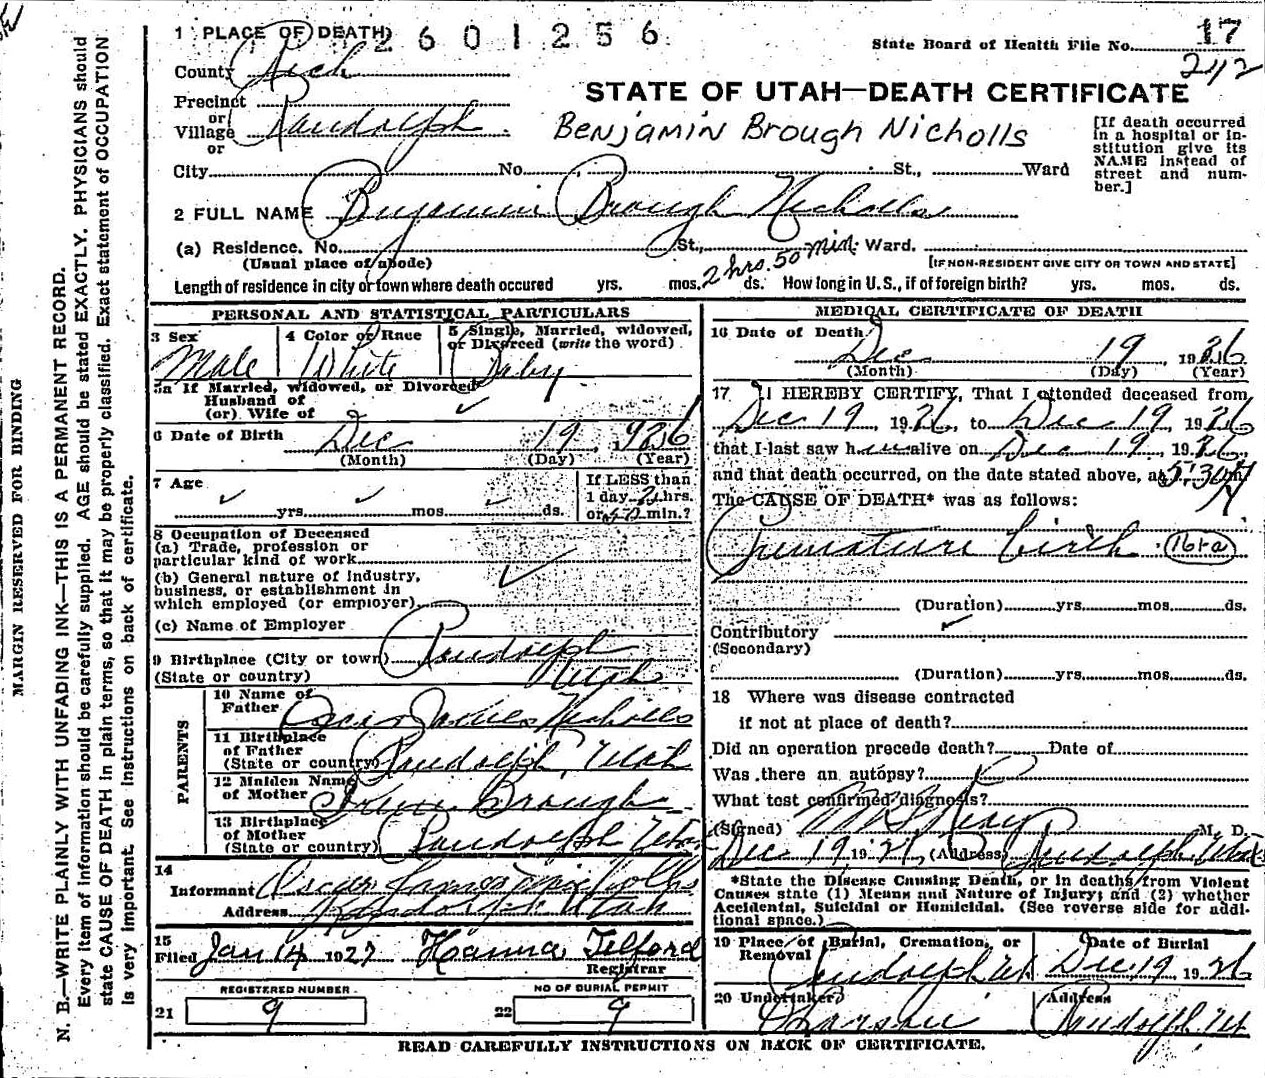 1 PLACE OF DEATH
2601256
State Board of Health File No. 17
242
County Rich
STATE OF UTAH—DEATH CERTIFICATE
Precinct
or
Village Randolph
or
Benjamin Brough Nicholls
[If death occurred
in a hospital or in-
stitution give its
NAME instead of
street and num-
ber.]
City No. St., Ward
2 FULL NAME Benjamin Brough Nicholls
(a) Residence. No. St., Ward.
(Usual place of abode)
[IF NON-RESIDENT GIVE CITY OR TOWN AND STATE]
2 hrs. 50 min.
Length of residence in city or town where death occured yrs. mos. ds. How long in U.S., if of foreign birth? yrs. mos. ds.
PERSONAL AND STATISTICAL PARTICULARS
3 Sex
Male
4 Color or Race
White
5 Single, Married, widowed,
or Divorced (write the word)
Baby
5a If Married, widowed, or Divorced
Husband of
(or) Wife of
6 Date of Birth Dec 19, 1926
(Month) (Day) (Year)
7 Age
yrs. mos. ds.
If LESS than
1 day 2 hrs.
or 50 min.?
8 Occupation of Deceased
(a) Trade, profession or
particular kind of work
(b) General nature of industry,
business, or establishment in
which employed (or employer)
(c) Name of Employer
9 Birthplace (City or town) Randolph
(State or country) Utah
PARENTS
10 Name of
Father James Nicholls
11 Birthplace
of Father
(State or country) Randolph, Utah
12 Maiden Name
of Mother Brough
13 Birthplace
of Mother
(State or country) Randolph Utah
14
Informant Oscar James Nicholls
Address Randolph Utah
15
Filed Jan 14 1927 Hanna Telford
Registrar
REGISTERED NUMBER
21 9
NO OF BURIAL PERMIT
22 9
MEDICAL CERTIFICATE OF DEATH
16 Date of Death
Dec 19, 1926
(Month) (Day) (Year)
17 I HEREBY CERTIFY, That I attended deceased from
Dec 19, 1926, to Dec 19, 1926
that I last saw h alive on Dec 19, 1926,
and that death occurred, on the date stated above, at 5:30
The CAUSE OF DEATH* was as follows:
Premature birth
(Duration) yrs. mos. ds.
Contributory
(Secondary)
(Duration) yrs. mos. ds.
18 Where was disease contracted
if not at place of death?
Did an operation precede death? Date of
Was there an autopsy?
What test confirmed diagnosis?
(Signed) M. D.
Dec 19 1926, (Address) Randolph, Utah
*State the Disease Causing Death, or in deaths from Violent
Causes state (1) Means and Nature of Injury; and (2) whether
Accidental, Suicidal or Homicidal. (See reverse side for addi-
tional space.)
19 Place of Burial, Cremation, or
Removal
Randolph Ut
Date of Burial
Dec 19 1926
20 Undertaker
Address
Randolph, Ut
READ CAREFULLY INSTRUCTIONS ON BACK OF CERTIFICATE.
MARGIN RESERVED FOR BINDING
N. B.—WRITE PLAINLY WITH UNFADING INK—THIS IS A PERMANENT RECORD.
Every item of information should be carefully supplied. AGE should be stated EXACTLY. PHYSICIANS should
state CAUSE OF DEATH in plain terms, so that it may be properly classified. Exact statement of OCCUPATION
is very important. See instructions on back of certificate.